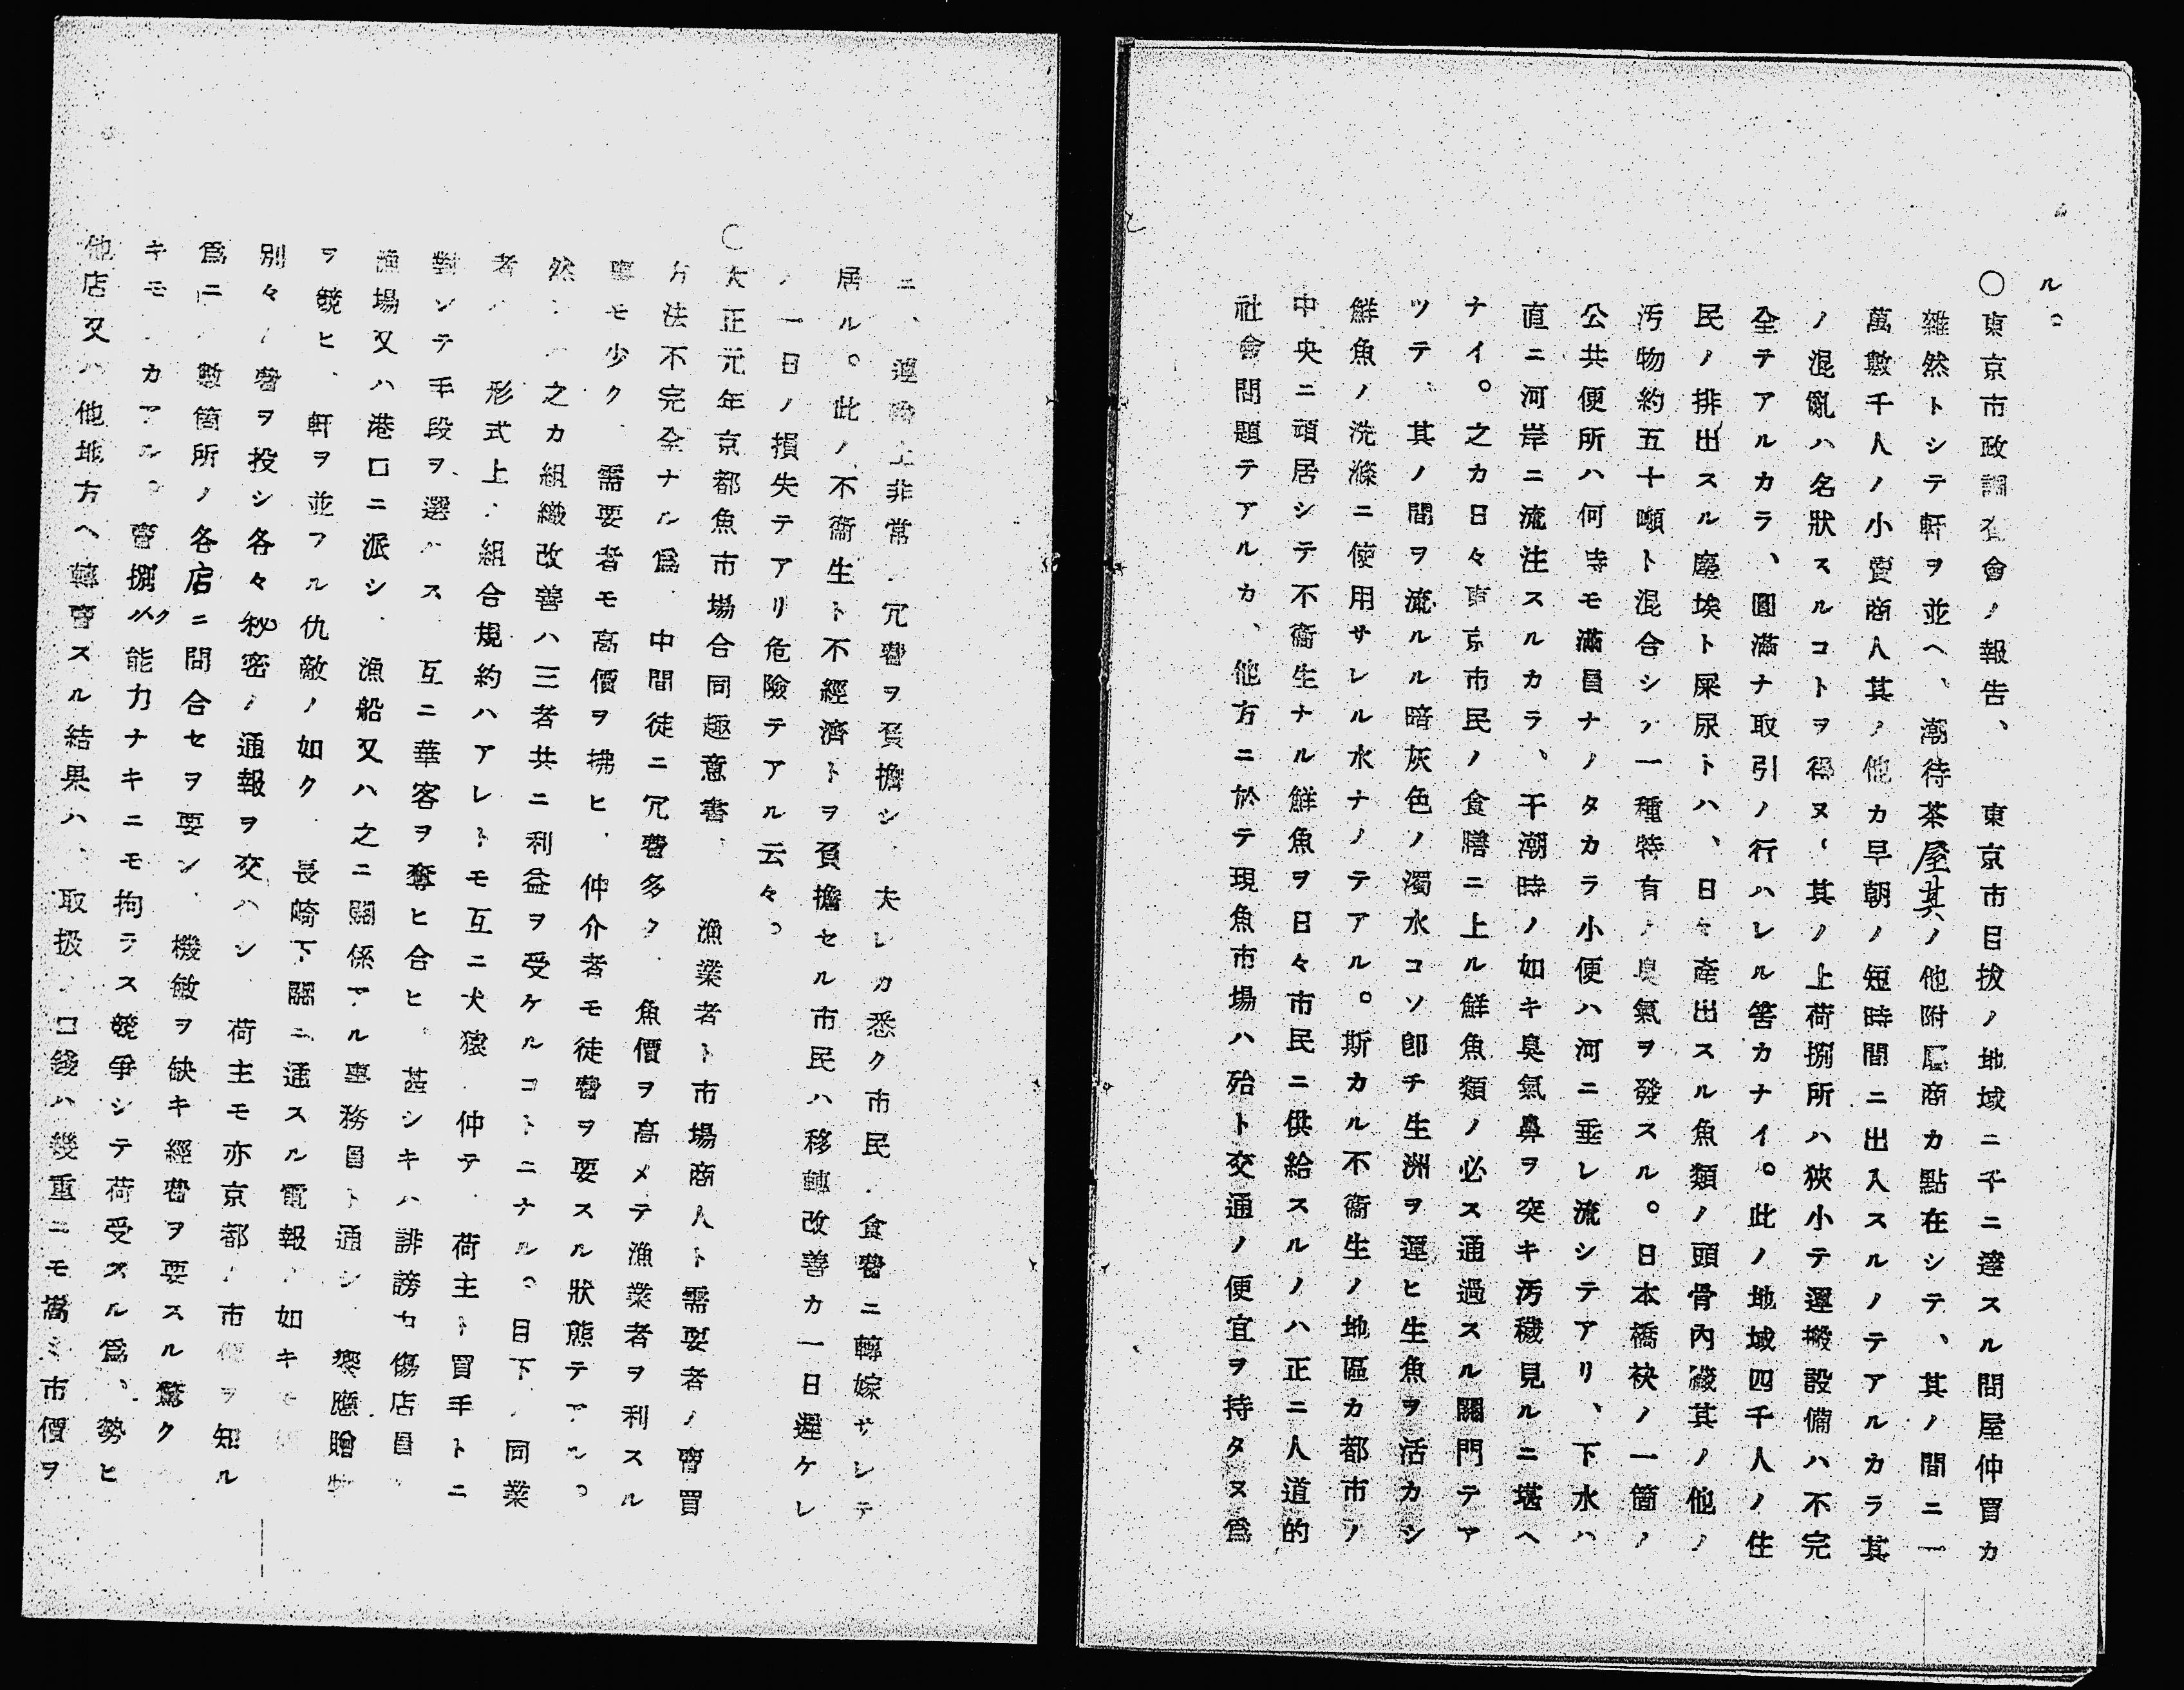 ル。
○東京市政調査會ノ報告、　東京市目拔ノ地域ニ千ニ達スル問屋仲買カ
雜然トシテ軒ヲ並ヘ、潮待茶屋其ノ他附屬商カ點在シテ、其ノ間ニ一
萬數千人ノ小賣商人其ノ他カ早朝ノ短時間ニ出入スルノテアルカラ其
ノ混亂ハ名狀スルコトヲ得ヌ、其ノ上荷捌所ハ狹小テ運搬設備ハ不完
全テアルカラ、圓滿ナ取引ノ行ハレル筈カナイ。此ノ地域四千人ノ住
民ノ排出スル塵埃ト屎尿トハ、日々產出スル魚類ノ頭骨內臟其ノ他ノ
汚物約五十噸ト混合シテ一種特有ノ臭氣ヲ發スル。日本橋袂ノ一箇ノ
公共便所ハ何時モ滿員ナノタカラ小便ハ河ニ垂レ流シテアリ、下水ハ
直ニ河岸ニ流注スルカラ、干潮時ノ如キ臭氣鼻ヲ突キ汚穢見ルニ堪ヘ
ナイ。之カ日々東京市民ノ食膳ニ上ル鮮魚類ノ必ス通過スル關門テア
ツテ、其ノ間ヲ流ルル暗灰色ノ濁水コソ卽チ生洲ヲ運ヒ生魚ヲ活カシ
鮮魚ノ洗滌ニ使用サレル水ナノテアル。斯カル不衞生ノ地區カ都市ノ
中央ニ頑居シテ不衞生ナル鮮魚ヲ日々市民ニ供給スルノハ正ニ人道的
社會問題テアルカ、他方ニ於テ現魚市場ハ殆ト交通ノ便宜ヲ持タヌ爲
ニ、運輸上非常ノ冗費ヲ負擔シ、夫レカ悉ク市民ノ食費ニ轉嫁サレテ
居ル。此ノ不衞生ト不經濟トヲ負擔セル市民ハ移轉改善カ一日遲ケレ
ハ一日ノ損失テアリ危險テアル云々。
○大正元年京都魚市場合同趣意書、　漁業者ト市場商人ト需要者ノ賣買
方法不完全ナル爲、中間徒ニ冗費多ク、魚價ヲ高メテ漁業者ヲ利スル
事モ少ク、需要者モ高價ヲ拂ヒ、仲介者モ徒費ヲ要スル狀態テアル。
然ルニ之カ組織改善ハ三者共ニ利益ヲ受ケルコトニナル。目下ノ同業
者ハ形式上ノ組合規約ハアレトモ互ニ犬猿ノ仲テ、荷主ト買手トニ
對シテ手段ヲ選ハス、互ニ華客ヲ奪ヒ合ヒ、甚シキハ誹謗中傷店員ヲ
漁場又ハ港口ニ派シ、漁船又ハ之ニ關係アル事務員ト通シ、饗應贈物
ヲ競ヒ、軒ヲ並フル仇敵ノ如ク、長崎下關ニ通スル電報ノ如キモ
別々ノ費ヲ投シ各々秘密ノ通報ヲ交ハシ、荷主モ亦京都ノ市價ヲ知ル
爲ニハ數箇所ノ各店ニ問合セヲ要シ、機敏ヲ缺キ經費ヲ要スル驚ク
キモノカアル。賣捌ク能力ナキニモ拘ラス競爭シテ荷受スル爲、勢ヒ
他店又ハ他地方ヘ轉賣スル結果ハ、取扱ノ口錢ハ幾重ニモ嵩ミ市價ヲ